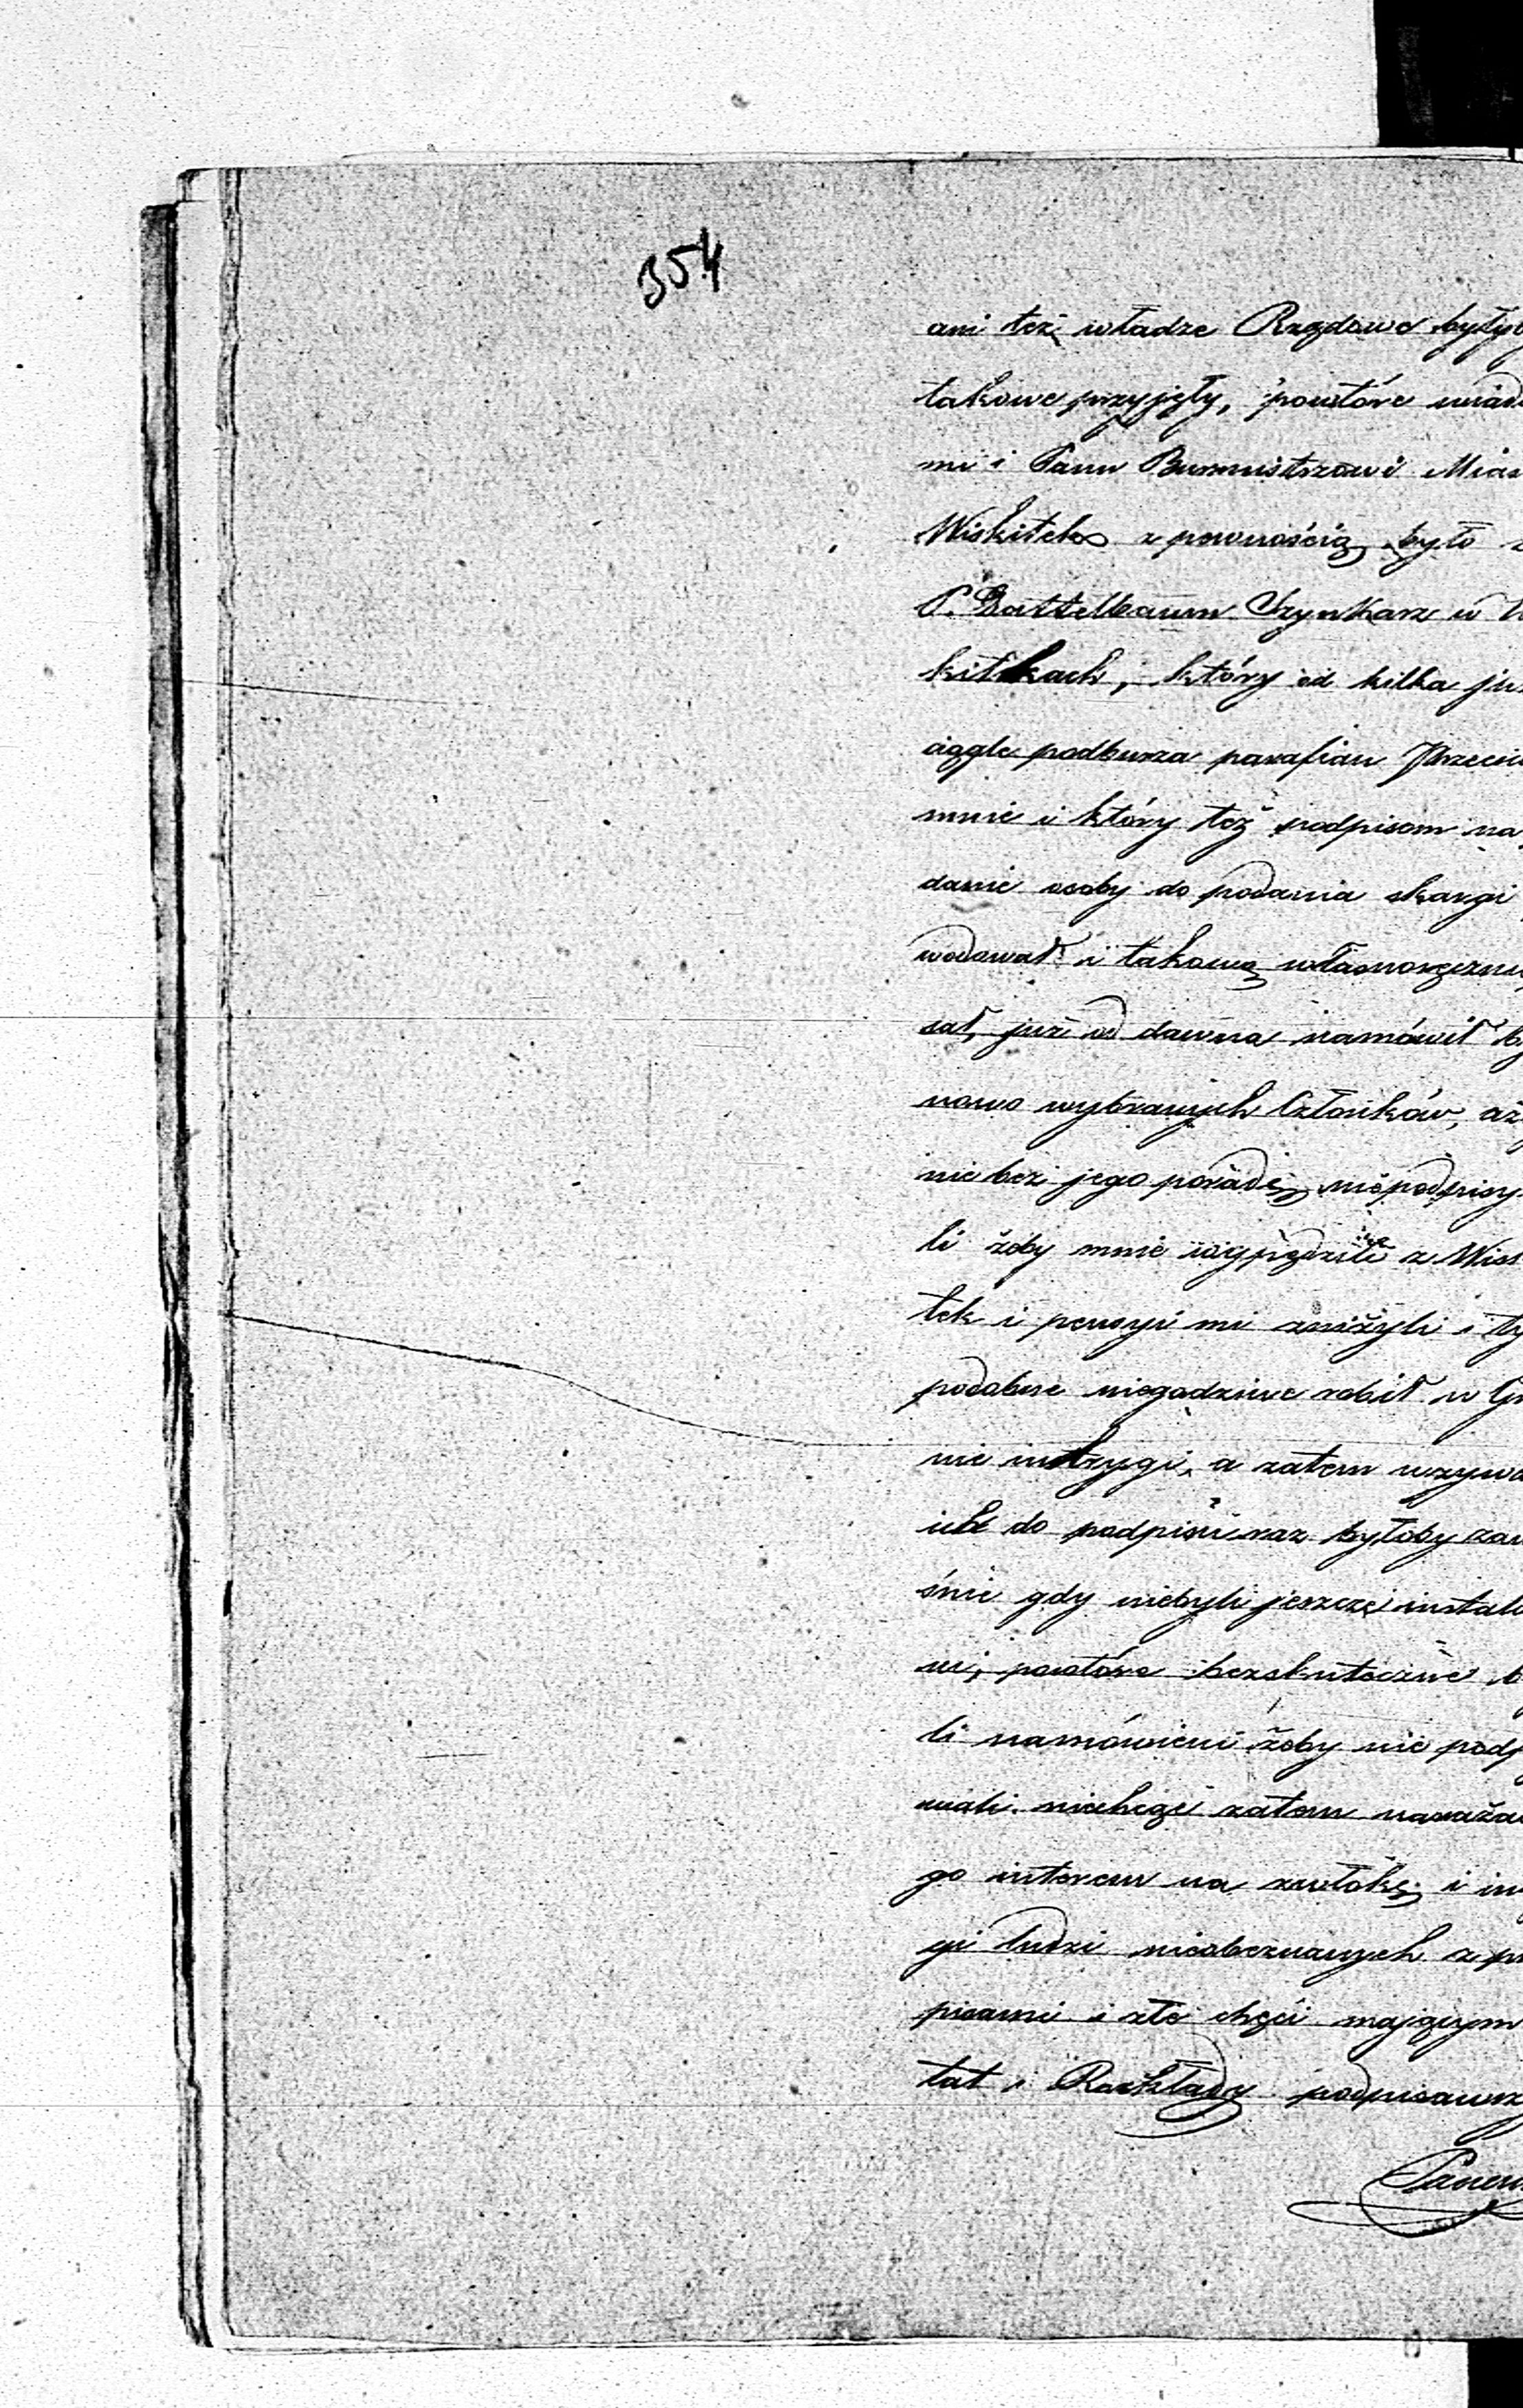 354
ani też władze Rządowe były
takowe przyjęły, powtóre wiad
mi i Panu Burmistrzowi Mias
Wiskitek z pewnością było
P. Dattelbaum Szynkarz w W
kitkach, który od kilku ju
ciągle podburza parafian Przeciw
mnie i który też podpisom na
danie osoby do podania skargi
wodował i takową własnoręczni
sał, już od dawna namówił b
nowo wybranych Członków, aż
nie bez jego porady niepodpisy
li żeby mnie z Wis
tek i pensyi mi zniżyli i ty
podobne niegodziwe robił w G
nie intrygi, a zatem wzywa
ich do podpisu raz byłoby za
śnie gdy niebyli jeszcze instal
ni, powtóre bezskutecznie b
li namówieni żeby nie podp
wali. niechcąc zatem naraża
go interesu na zwłokę i in
gi ludzi nieobeznanych z p
pisami i złe chęci mającym
tat i Rozkłady podpisawsz